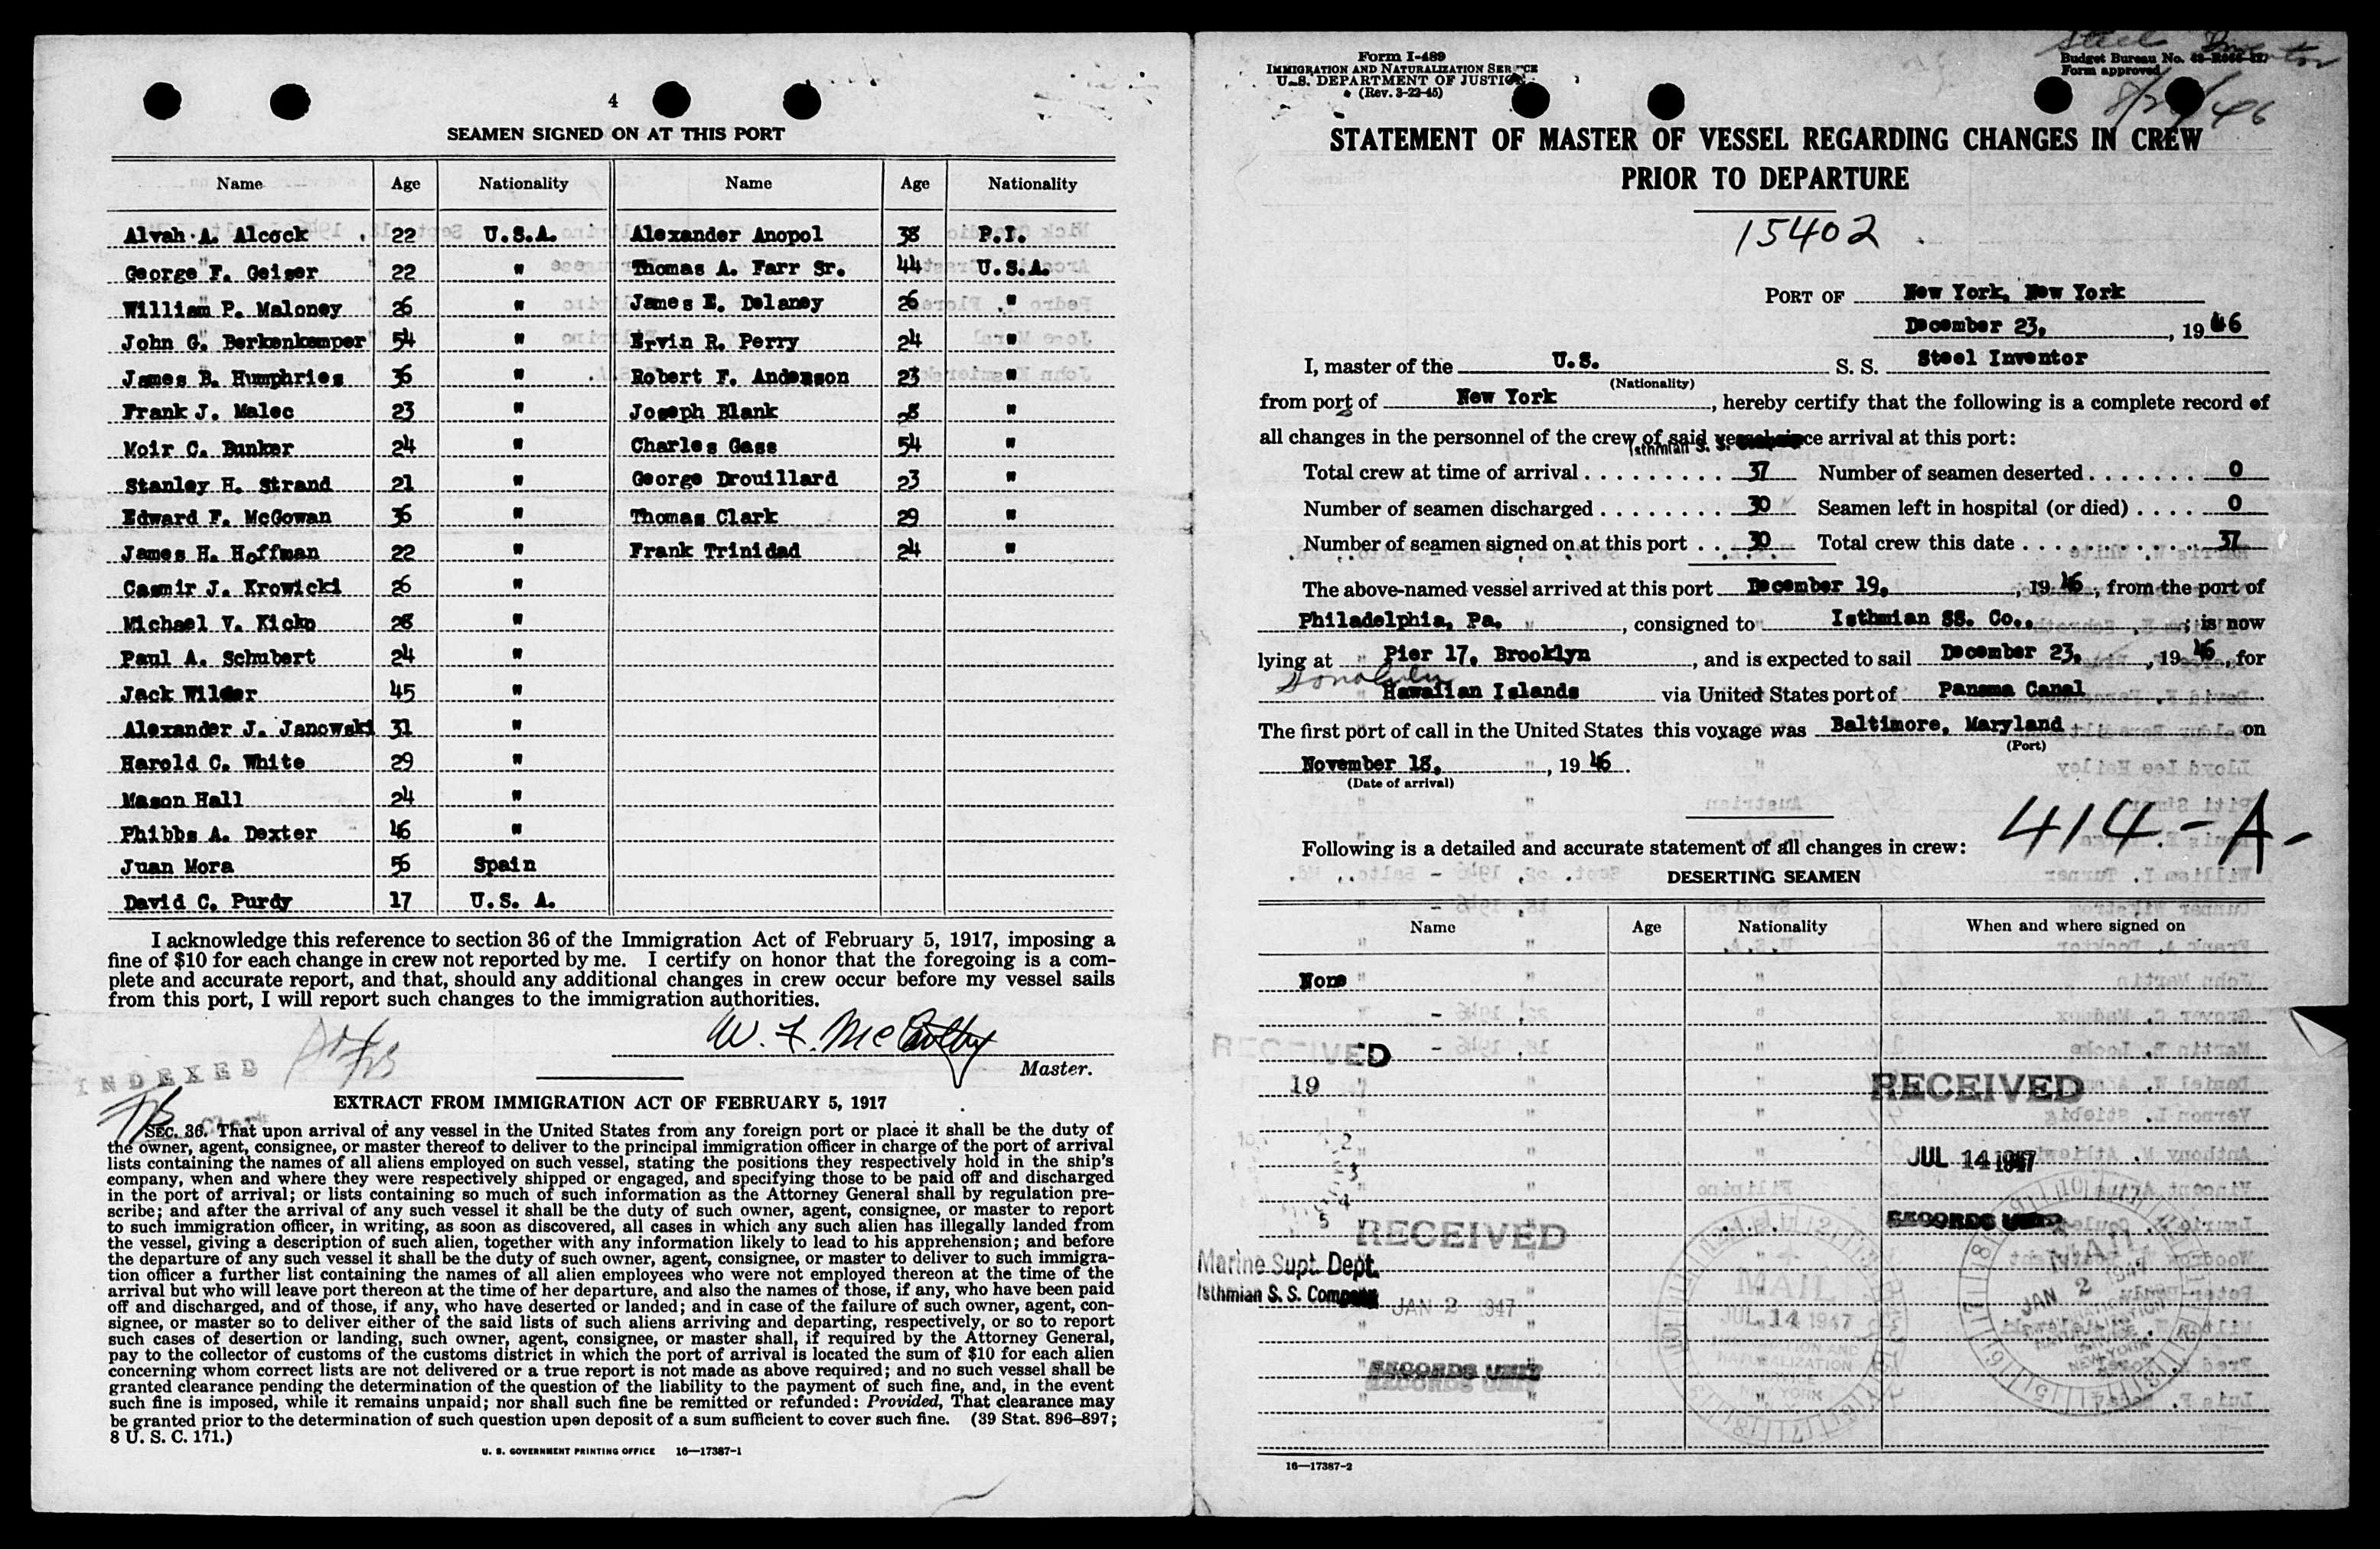 4
SEAMEN SIGNED ON AT THIS PORT
Name Age Nationality Name Age Nationality
Alvah A. Alcock 22 U.S.A. Alexander Anopol 38 P.I.
George F. Geiser 22 " Thomas A. Farr Sr. 44 U.S.A.
William P. Maloney 26 " James E. Delaney 26 "
John G. Berkenkemper 54 " Ervin R. Perry 24 "
James B. Humphries 36 " Robert F. Anderson 23 "
Frank J. Malec 23 " Joseph Blank 28 "
Moir C. Bunker 24 " Charles Gass 54 "
Stanley H. Strand 21 " George Drouillard 23 "
Edward F. McGowan 36 " Thomas Clark 29 "
James H. Hoffman 22 " Frank Trinidad 24 "
Casmir J. Krowicki 26 "
Michael V. Kicko 28 "
Paul A. Schubert 24 "
Jack Wilder 45 "
Alexander J. Janowski 31 "
Harold C. White 29 "
Mason Hall 24 "
Phibbs A. Dexter 46 "
Juan Mora 56 Spain
David C. Purdy 17 U.S. A.
I acknowledge this reference to section 36 of the Immigration Act of February 5, 1917, imposing a
fine of $10 for each change in crew not reported by me. I certify on honor that the foregoing is a com-
plete and accurate report, and that, should any additional changes in crew occur before my vessel sails
from this port, I will report such changes to the immigration authorities.
W. F. McCarthy
Master.
INDEXED
Clerk
EXTRACT FROM IMMIGRATION ACT OF FEBRUARY 5, 1917
SEC. 36. That upon arrival of any vessel in the United States from any foreign port or place it shall be the duty of
the owner, agent, consignee, or master thereof to deliver to the principal immigration officer in charge of the port of arrival
lists containing the names of all aliens employed on such vessel, stating the positions they respectively hold in the ship's
company, when and where they were respectively shipped or engaged, and specifying those to be paid off and discharged
in the port of arrival; or lists containing so much of such information as the Attorney General shall by regulation pre-
scribe; and after the arrival of any such vessel it shall be the duty of such owner, agent, consignee, or master to report
to such immigration officer, in writing, as soon as discovered, all cases in which any such alien has illegally landed from
the vessel, giving a description of such alien, together with any information likely to lead to his apprehension; and before
the departure of any such vessel it shall be the duty of such owner, agent, consignee, or master to deliver to such immigra-
tion officer a further list containing the names of all alien employees who were not employed thereon at the time of the
arrival but who will leave port thereon at the time of her departure, and also the names of those, if any, who have been paid
off and discharged, and of those, if any, who have deserted or landed; and in case of the failure of such owner, agent, con-
signee, or master so to deliver either of the said lists of such aliens arriving and departing, respectively, or so to report
such cases of desertion or landing, such owner, agent, consignee, or master shall, if required by the Attorney General,
pay to the collector of customs of the customs district in which the port of arrival is located the sum of $10 for each alien
concerning whom correct lists are not delivered or a true report is not made as above required; and no such vessel shall be
granted clearance pending the determination of the question of the liability to the payment of such fine, and, in the event
such fine is imposed, while it remains unpaid; nor shall such fine be remitted or refunded: Provided, That clearance may
be granted prior to the determination of such question upon deposit of a sum sufficient to cover such fine. (39 Stat. 896–897;
8 U. S. C. 171.)
U. S. GOVERNMENT PRINTING OFFICE 16—17387-1
Form I-489
IMMIGRATION AND NATURALIZATION SERVICE
U. S. DEPARTMENT OF JUSTICE
(Rev. 3-22-45)
Steel Inventor
Budget Bureau No.
Form approved
STATEMENT OF MASTER OF VESSEL REGARDING CHANGES IN CREW
PRIOR TO DEPARTURE
15402
PORT OF New York, New York
December 23, , 19 46
I, master of the U.S. S. S. Steel Inventor
(Nationality)
from port of New York , hereby certify that the following is a complete record of
all changes in the personnel of the crew of said vessel since arrival at this port:
Isthmian S. S. Company
Total crew at time of arrival 37 Number of seamen deserted 0
Number of seamen discharged 30 Seamen left in hospital (or died) 0
Number of seamen signed on at this port 30 Total crew this date 37
The above-named vessel arrived at this port December 19, , 19 46, from the port of
Philadelphia, Pa. , consigned to Isthmian SS. Co., ; is now
lying at Pier 17, Brooklyn , and is expected to sail December 23, , 19 46, for
Honolulu
Hawaiian Islands via United States port of Panama Canal
The first port of call in the United States this voyage was Baltimore, Maryland on
(Port)
November 18, , 19 46.
(Date of arrival)
414-A-
Following is a detailed and accurate statement of all changes in crew:
DESERTING SEAMEN
Name Age Nationality When and where signed on
None
RECEIVED
19
RECEIVED
JUL 14 1947
RECORDS UNIT
RECEIVED
Marine Supt. Dept.
Isthmian S. S. Company
JAN 2 1947
RECORDS UNIT
MAIL
JUL 14 1947
IMMIGRATION AND
NATURALIZATION
SERVICE
NEW YORK
MAIL
JAN 2 1947
IMMIGRATION
NEW YORK
16—17387-2